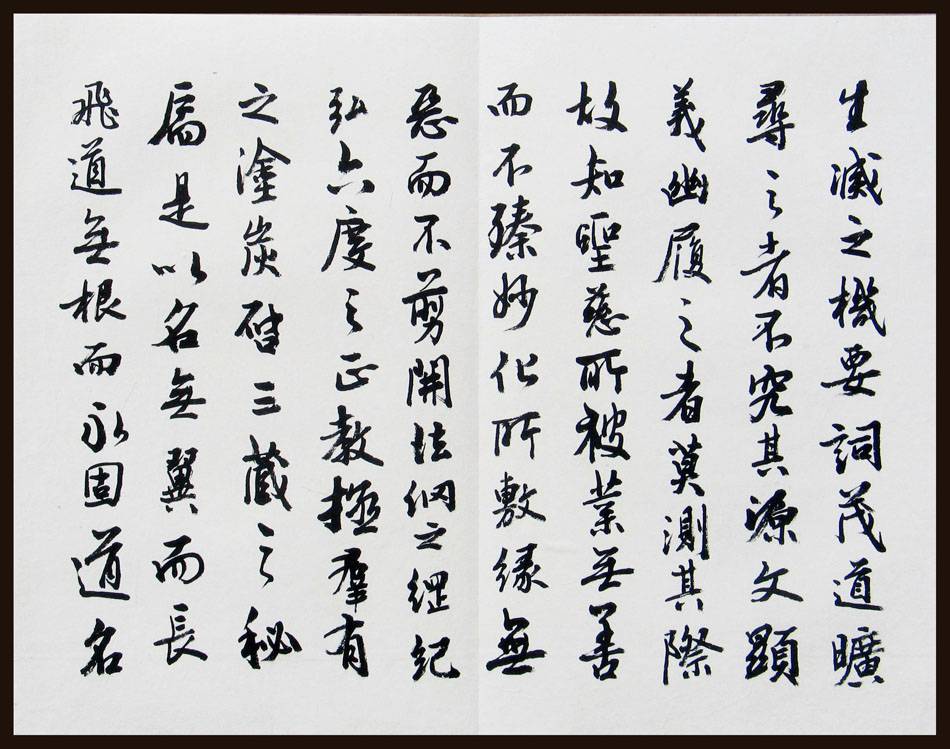 生滅之機要詞茂道曠
尋之者不究其源文顯
義幽履之者莫測其際
故知聖慈所被業無善
而不臻妙化所敷緣無
惡而不剪開法網之綱紀
弘六度之正教拯羣有
之塗炭啓三藏之秘
扃是以名無翼而長
飛道無根而永固道名